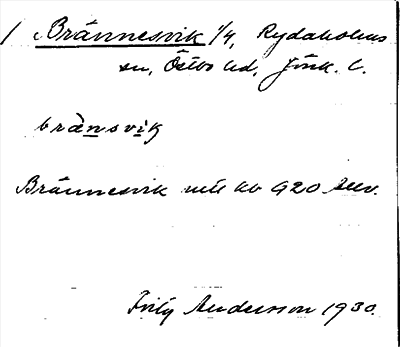 / Brännesvik 1/4, Rydaholms
sn, Östbo hd, Jönk. l.
brä̀nsvìg
Brännesvik mtl kb 920
Fritz Andersson 1930.